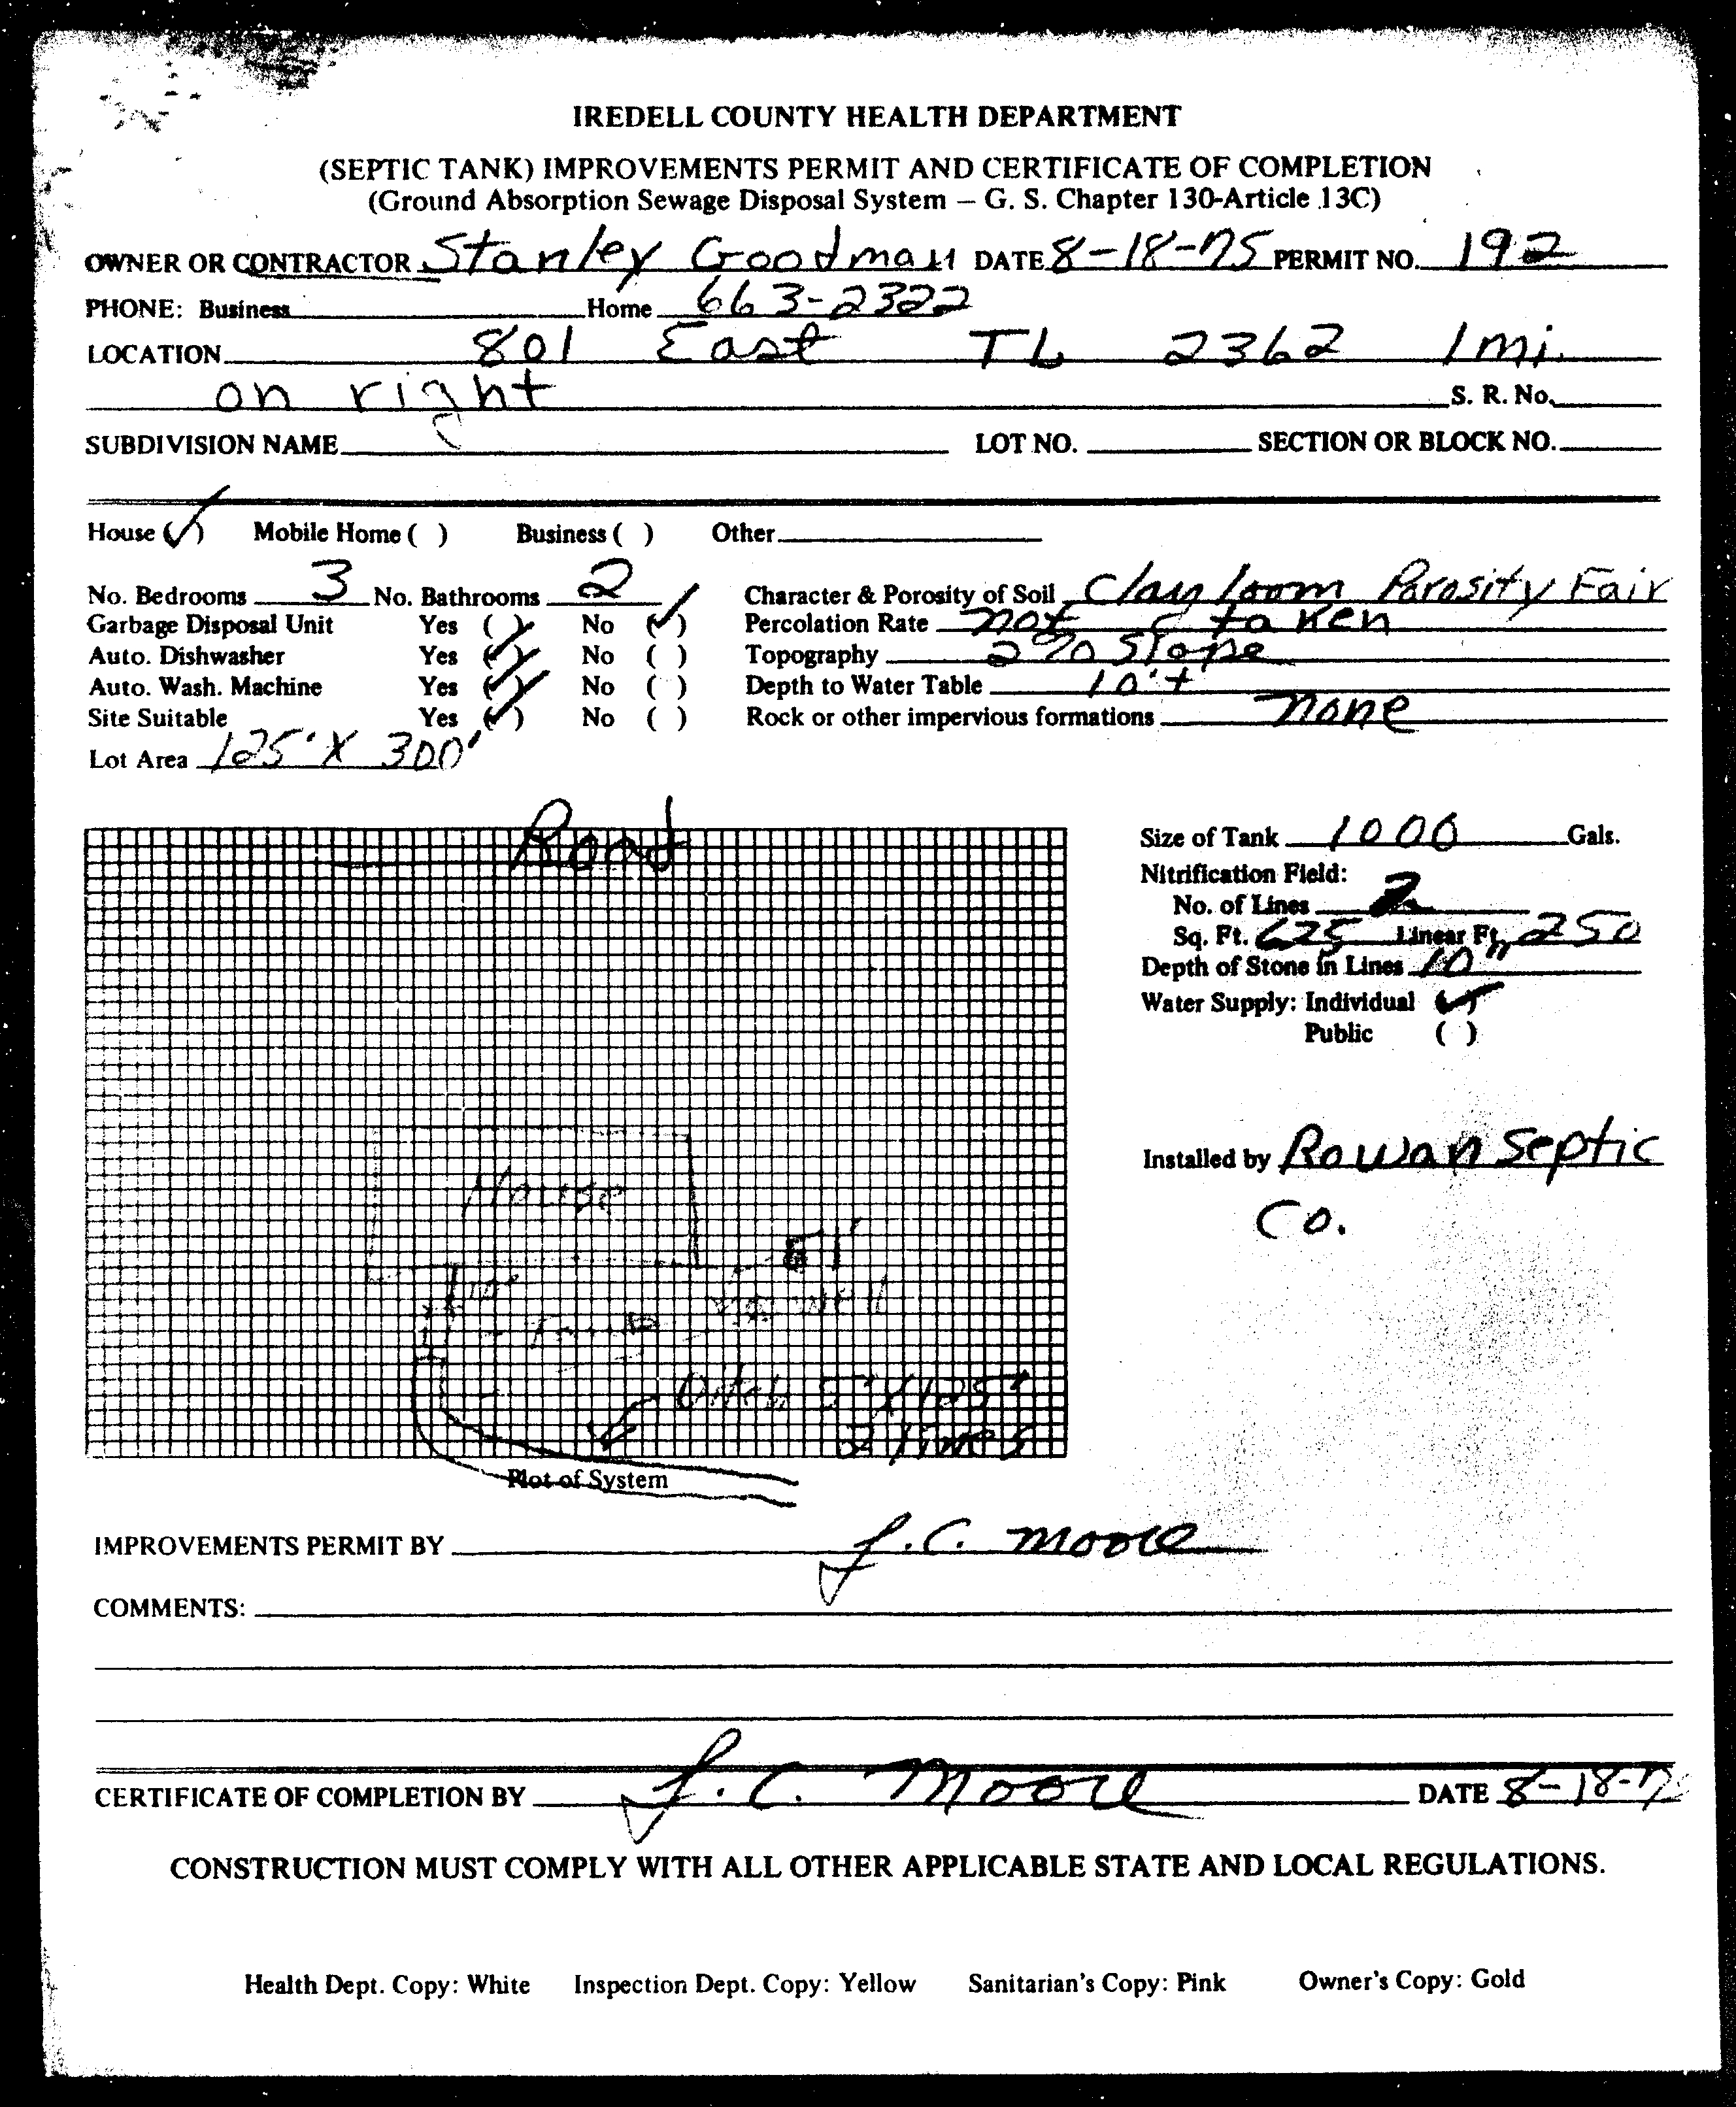 IREDELL COUNTY HEALTH DEPARTMENT
(SEPTIC TANK) IMPROVEMENTS PERMIT AND CERTIFICATE OF COMPLETION
(Ground Absorption Sewage Disposal System – G. S. Chapter 130-Article 13C)
OWNER OR CONTRACTOR Stanley Goodman DATE 8-18-75 PERMIT NO. 192
PHONE: Business Home 663-2322
LOCATION 801 East TL 2362 1 mi.
on right S. R. No.
SUBDIVISION NAME LOT NO. SECTION OR BLOCK NO.
House (✓) Mobile Home ( ) Business ( ) Other
No. Bedrooms 3 No. Bathrooms 2 Character & Porosity of Soil Clay loam Parosity Fair
Garbage Disposal Unit Yes ( ) No (✓) Percolation Rate not taken
Auto. Dishwasher Yes (✓) No ( ) Topography 2% Slope
Auto. Wash. Machine Yes (✓) No ( ) Depth to Water Table 10'+
Site Suitable Yes (✓) No ( ) Rock or other impervious formations none
Lot Area 125' X 300'
Road
Size of Tank 1000 Gals.
Nitrification Field:
No. of Lines 2
Sq. Ft. 625 Linear Ft. 250
Depth of Stone in Lines 10"
Water Supply: Individual (✓)
Public ( )
Installed by Rowan Septic
Co.
House
well
Ditch 5' X 125'
2 lines
Plot of System
IMPROVEMENTS PERMIT BY J.C. Moore
COMMENTS:
CERTIFICATE OF COMPLETION BY J.C. Moore DATE 8-18-7
CONSTRUCTION MUST COMPLY WITH ALL OTHER APPLICABLE STATE AND LOCAL REGULATIONS.
Health Dept. Copy: White Inspection Dept. Copy: Yellow Sanitarian's Copy: Pink Owner's Copy: Gold